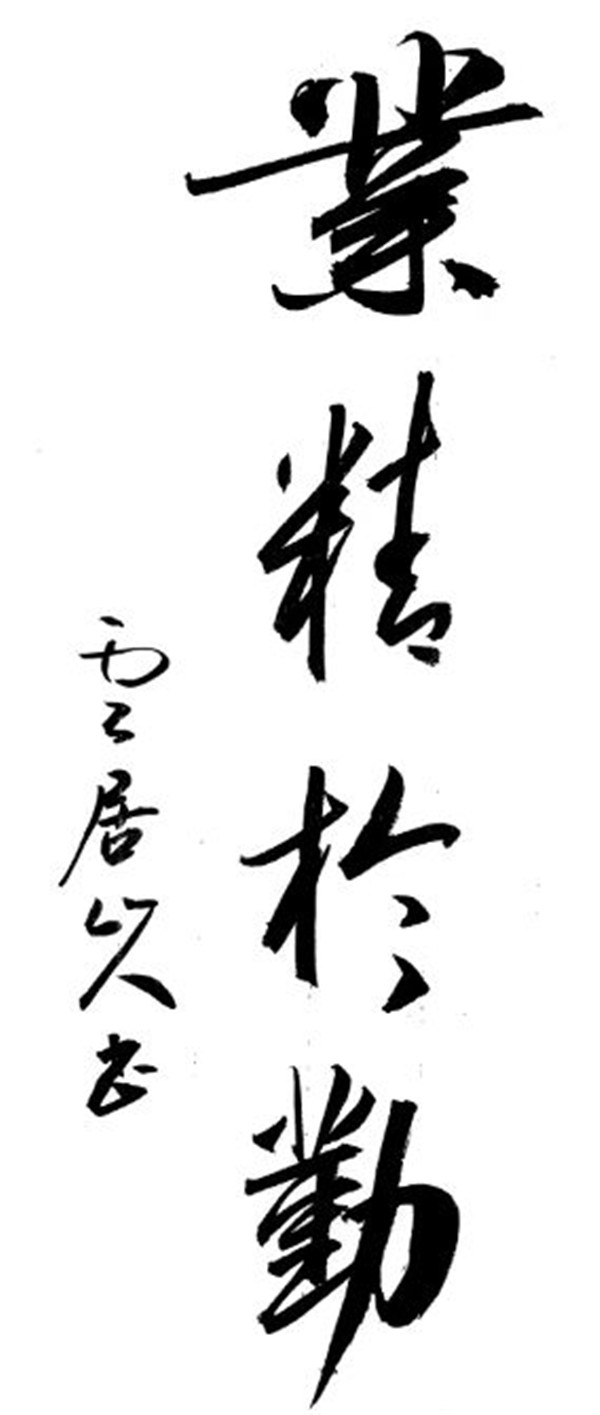 業精於勤
雲居山人書